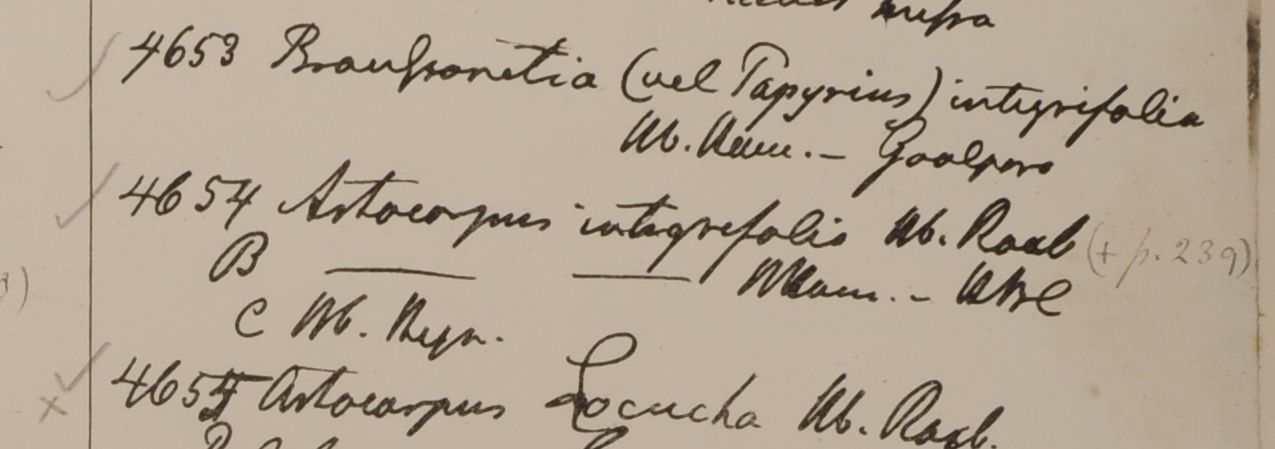 infra
4653 Brousonetia (vel Papyrius) integrifolia
Hb. Ham. - Goalpara
4654 Artocarpus integrifolia Hb. Roxb (+ p. 239)
B
C Hb. Heyn.
4655 Artocarpus Lacucha Hb. Roxb.